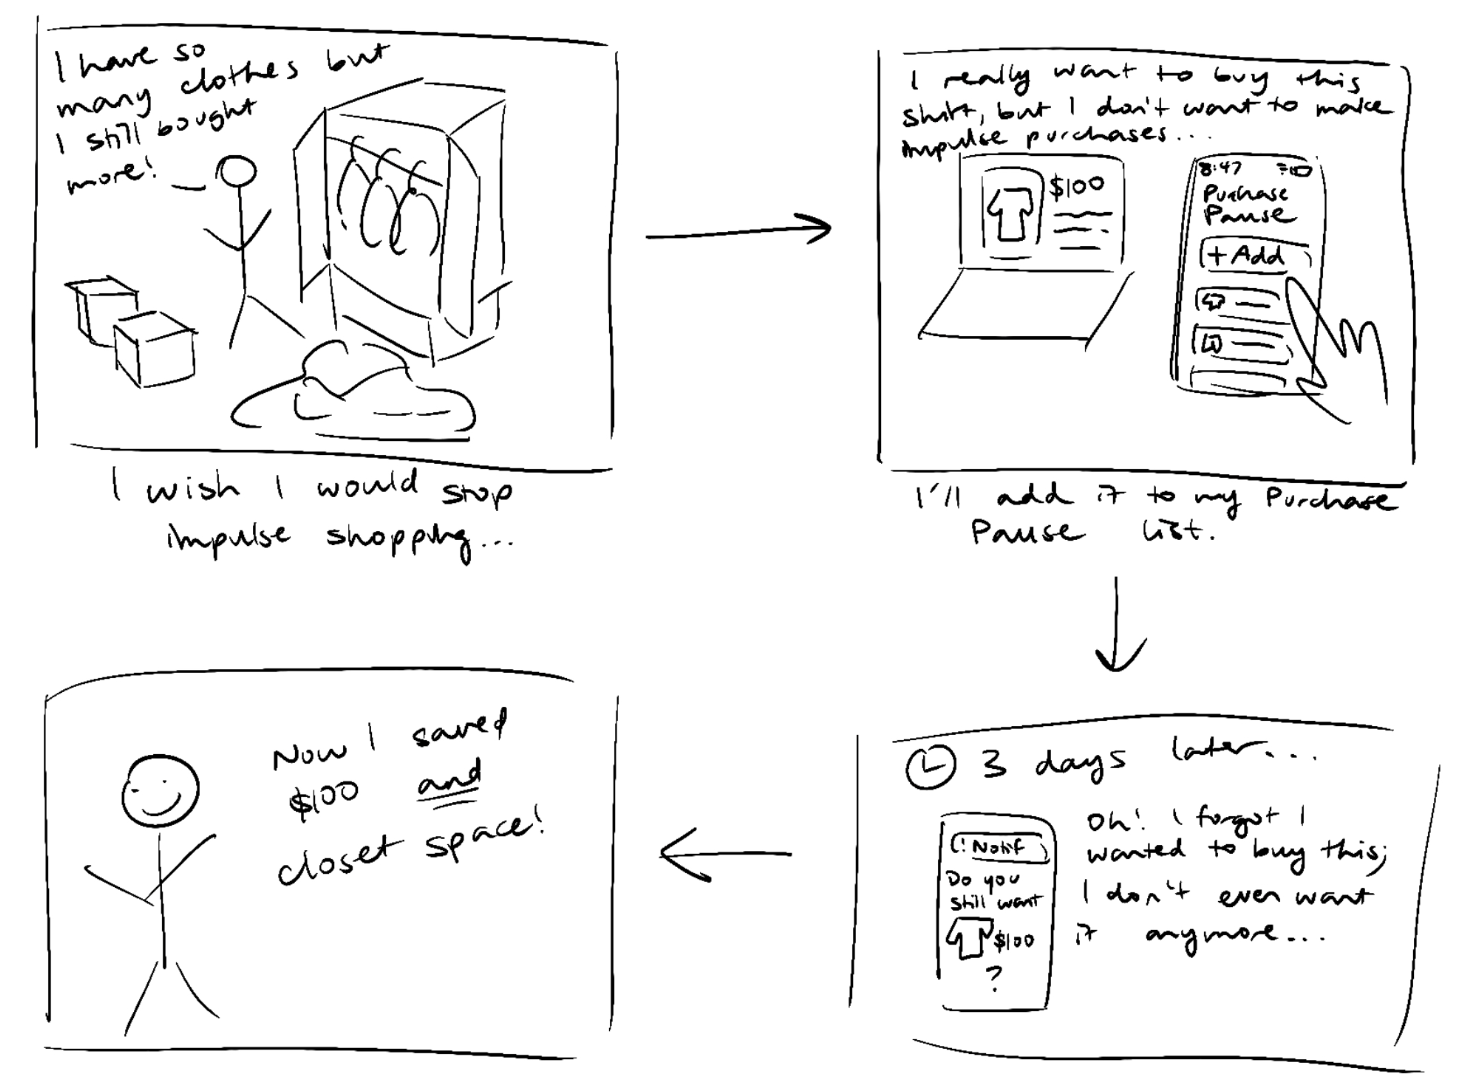 I have so
many clothes but
I still bought
more!
I wish I would stop
impulse shopping...
I really want to buy this
shirt, but I don't want to make
impulse purchases...
$100
8:47
Purchase
Pause
+ Add
I'll add it to my Purchase
Pause list.
3 days later...
! Notif
Do you
still want
$100
?
Oh! I forgot I
wanted to buy this;
I don't even want
it anymore...
Now I saved
$100 and
closet space!